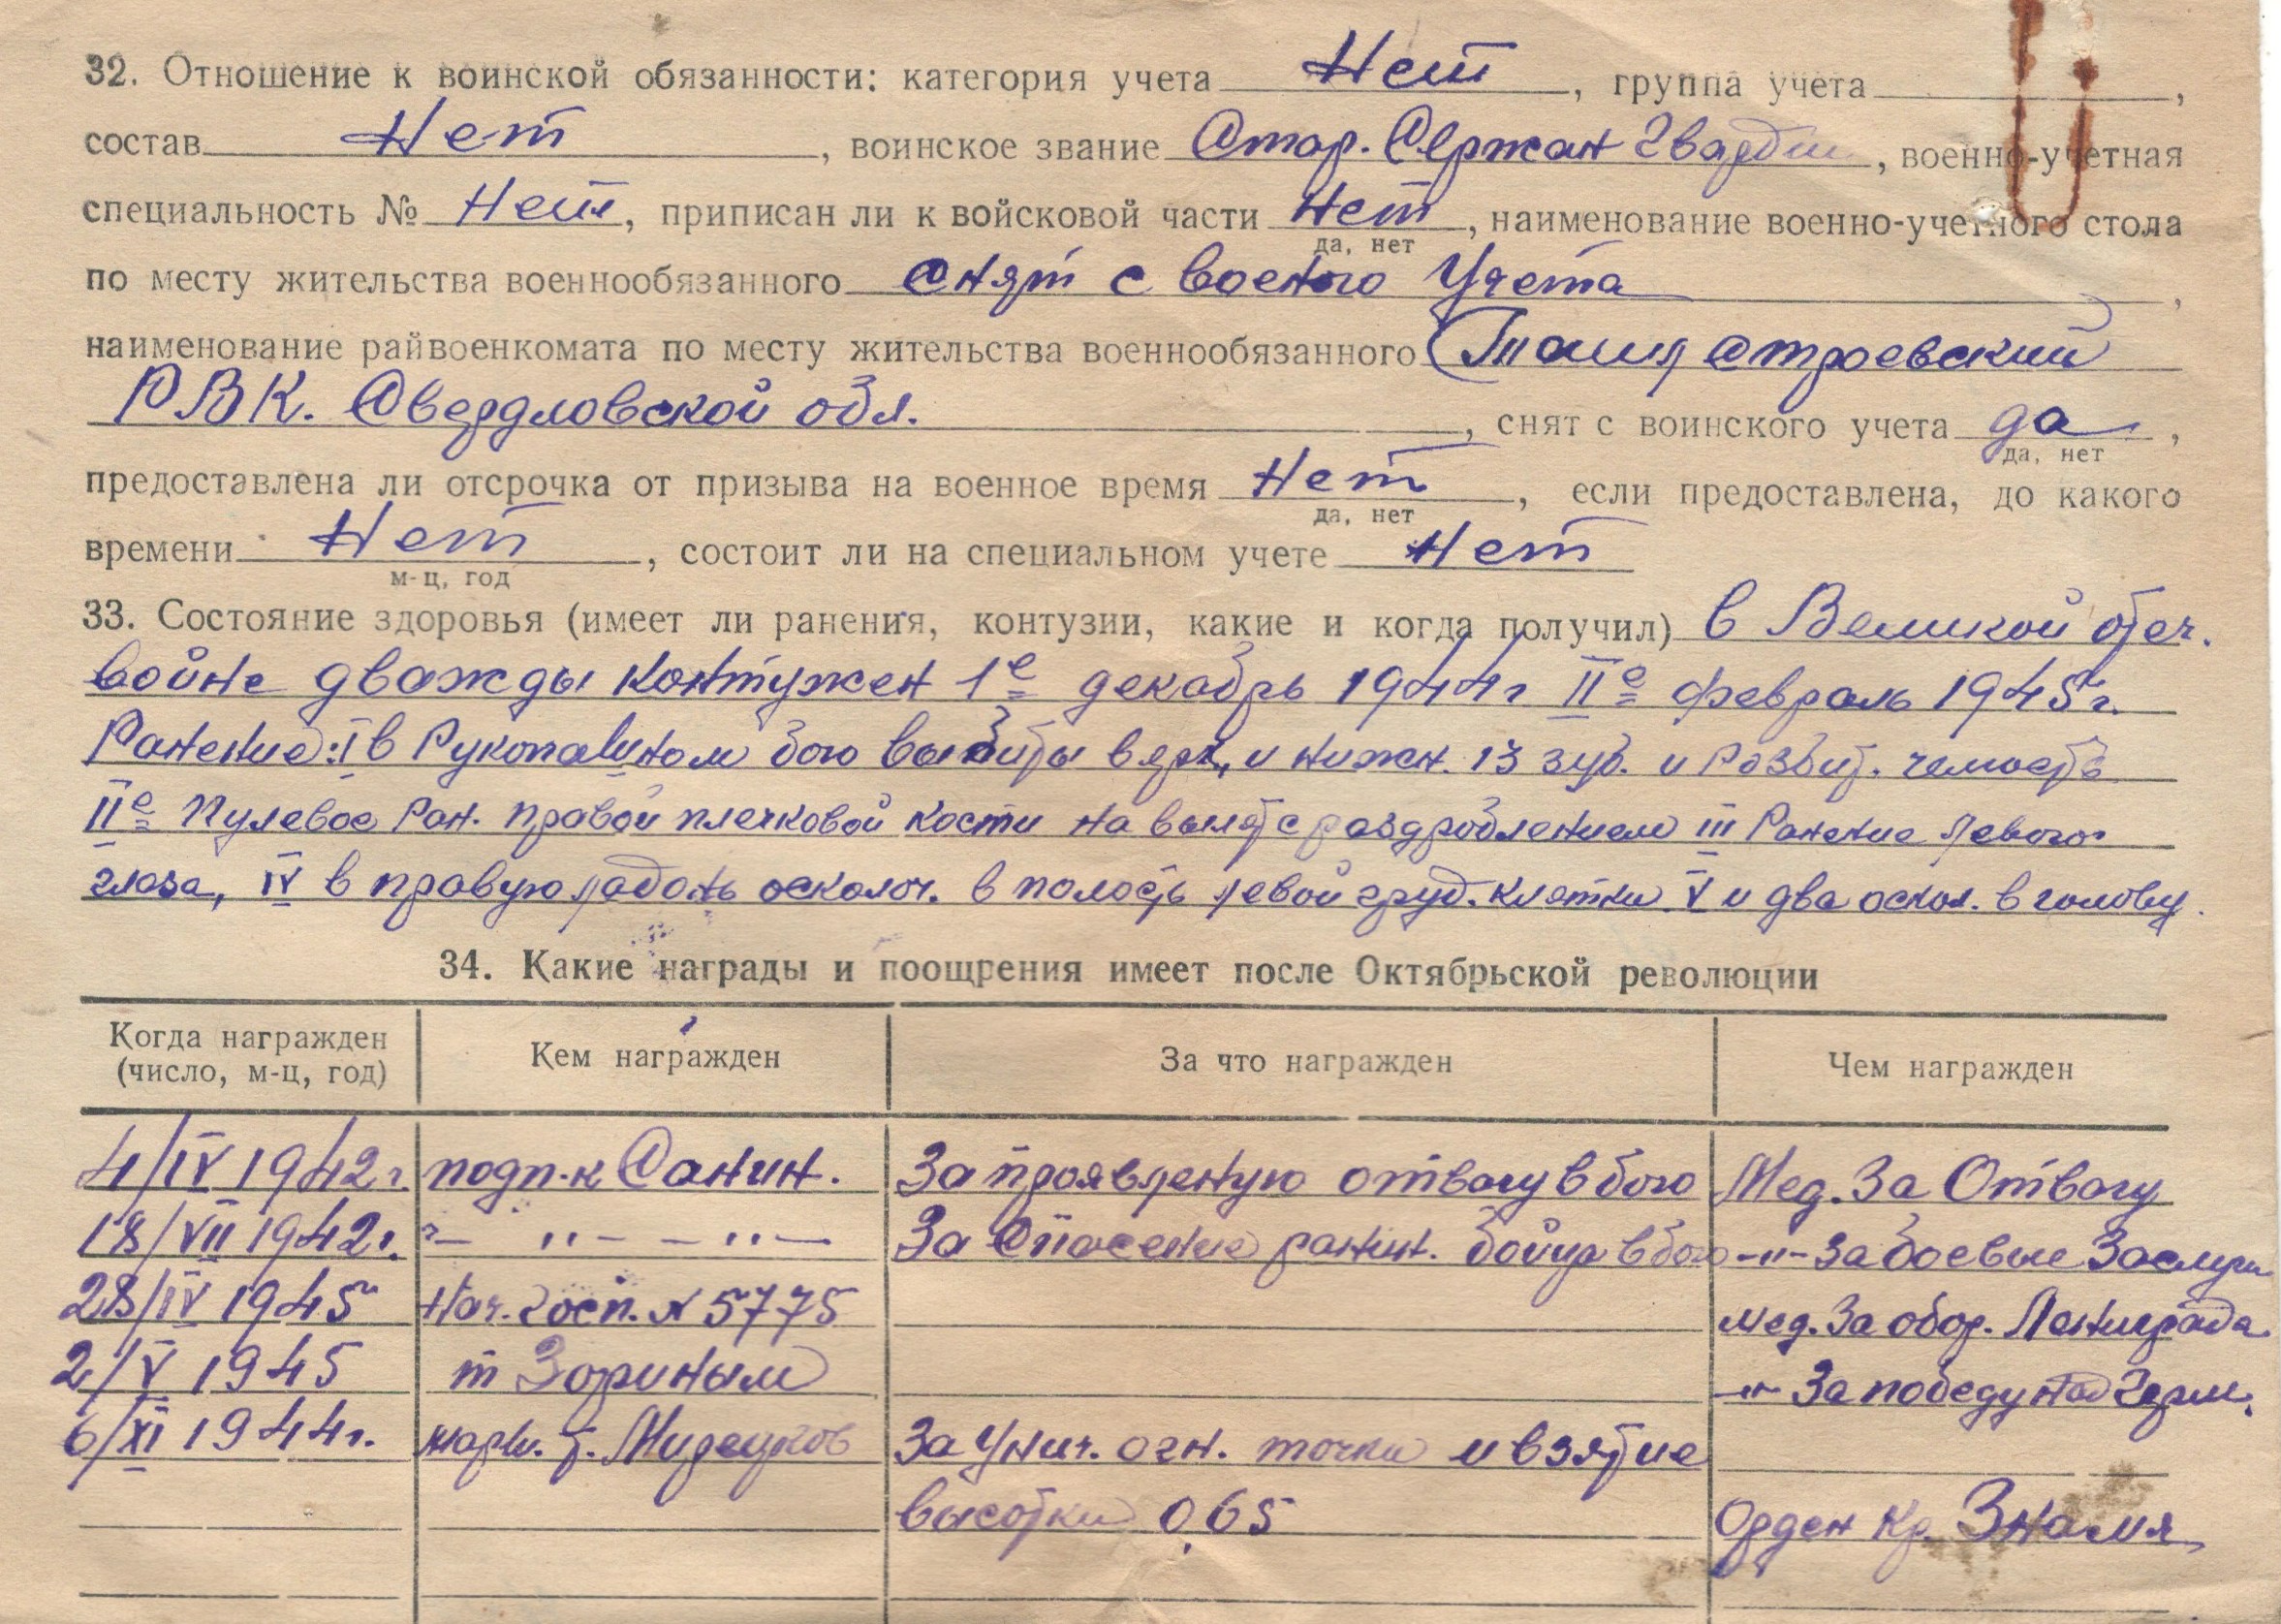 32. Отношение к воинской обязанности: категория учета Нет, группа учета ,
состав Нет, воинское звание Стар. Сержан Гвардии, военно-учетная
специальность № Нет, приписан ли к войсковой части Нет, наименование военно-учетного стола
да, нет
по месту жительства военнообязанного снят с военого Учета,
наименование райвоенкомата по месту жительства военнообязанного
РВК. Свердловской обл., снят с воинского учета да,
да, нет
предоставлена ли отсрочка от призыва на военное время Нет, если предоставлена, до какого
да, нет
времени Нет, состоит ли на специальном учете Нет
м-ц, год
33. Состояние здоровья (имеет ли ранения, контузии, какие и когда получил) в Великой отеч.
войне дважды контужен 1е декабрь 1944г IIе февраль 1945г.
Ранение: I в Рукопашном бою выбиты верх. и нижн. 13 зуб. и Разбит. челюсть
IIе Пулевое Ран. правой плечковой кости на вылет с раздроблением III Ранение левого
глаза, IV в правую ладонь осколоч. в полость левой груд. клетки V и два оскол. в голову.
34. Какие награды и поощрения имеет после Октябрьской революции
Когда награжден (число, м-ц, год) Кем награжден За что награжден Чем награжден
4/IV 1942г. подп-к Санин. За проявленую отвагу в бою Мед. За Отвагу
18/VII 1942г. — " — — " — За Спасение ранин. бойца в бою —"— За боевые Заслуги
28/IV 1945 Нач. Госп. № 5775 Мед. За обор. Ленинграда
2/V 1945 т Зориным —"— За победу над Герм.
6/XI 1944г. марш. т. За Унич. огн. точки и взятие
высотки 0,65 Орден Кр. Знамя